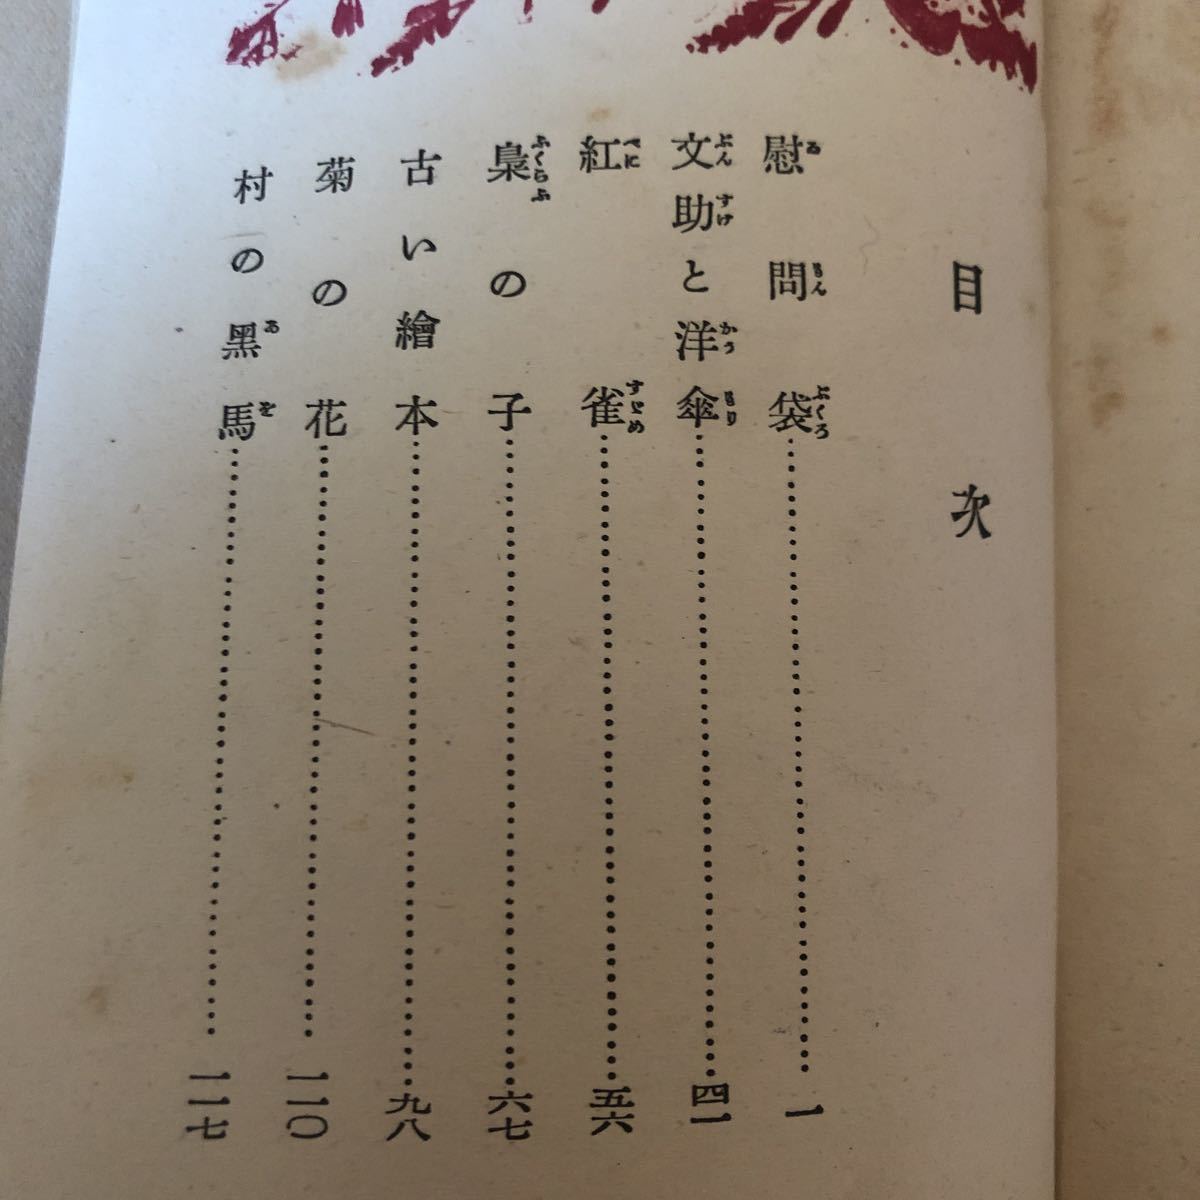 目次
慰問袋……一
文助と洋傘……四一
紅雀……五六
梟の子……六七
古い繪本……九八
菊の花……一一〇
村の黑馬……一一七